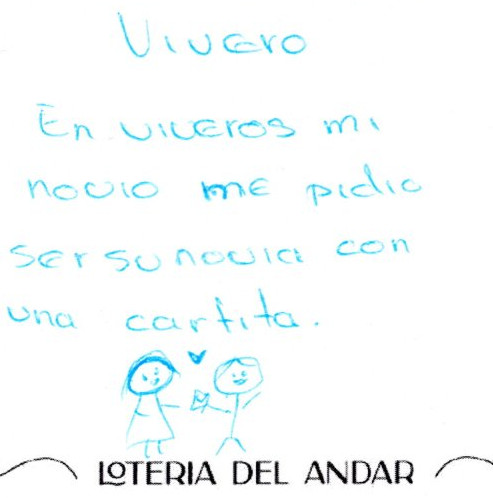 Vivero
En viveros mi
novio me pidio
ser su novia con
una cartita.
LOTERIA DEL ANDAR